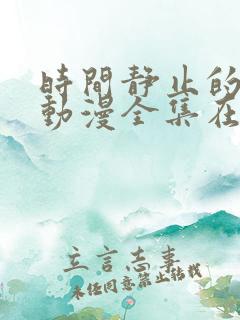 時間靜止的
動漫全集在
立言志事
未任同意禁止結我